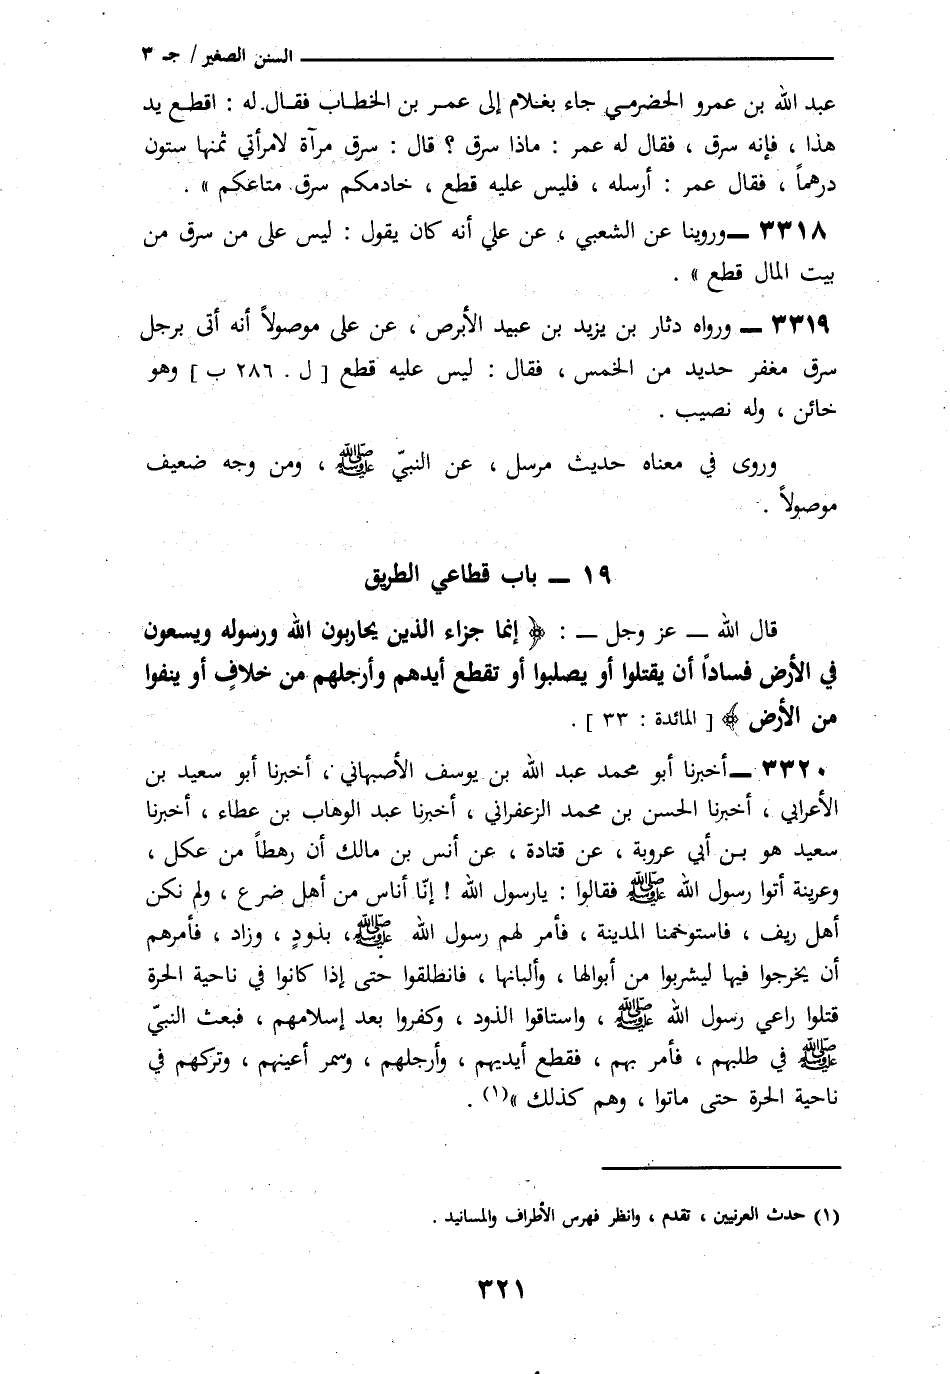 السنن الصغير / جـ ٣
عبد الله بن عمرو الحضرمي جاء بغلام إلى عمر بن الخطاب فقال له : اقطع يد
هذا ، فإنه سرق ، فقال له عمر : ماذا سرق ؟ قال : سرق مرآة لامرأتي ثمنها ستون
درهماً ، فقال عمر : أرسله ، فليس عليه قطع ، خادمكم سرق متاعكم » .
٣٣١٨ ــ وروينا عن الشعبي ، عن علي أنه كان يقول : ليس على من سرق من
بيت المال قطع » .
٣٣١٩ ــ ورواه دثار بن يزيد بن عبيد الأبرص ، عن على موصولاً أنه أتى برجل
سرق مغفر حديد من الخمس ، فقال : ليس عليه قطع [ ل . ٢٨٦ ب ] وهو
خائن ، وله نصيب .
وروى في معناه حديث مرسل ، عن النبيّ ﷺ ، ومن وجه ضعيف
موصولاً .
١٩ ــ باب قطاعي الطريق
قال الله ــ عز وجل ــ : ﴿ إنما جزاء الذين يحاربون الله ورسوله ويسعون
في الأرض فساداً أن يقتلوا أو يصلبوا أو تقطع أيدهم وأرجلهم من خلافٍ أو ينفوا
من الأرض ﴾ [ المائدة : ٣٣ ] .
٣٣٢٠ ــ أخبرنا أبو محمد عبد الله بن يوسف الأصبهاني ، أخبرنا أبو سعيد بن
الأعرابي ، أخبرنا الحسن بن محمد الزعفراني ، أخبرنا عبد الوهاب بن عطاء ، أخبرنا
سعيد هو بن أبي عروبة ، عن قتادة ، عن أنس بن مالك أن رهطاً من عكل ،
وعرينة أتوا رسول الله ﷺ فقالوا : يارسول الله ! إنّا أناس من أهل ضرع ، ولم نكن
أهل ريف ، فاستوخمنا المدينة ، فأمر لهم رسول الله ﷺ ، بذودٍ ، وزاد ، فأمرهم
أن يخرجوا فيها ليشربوا من أبوالها ، وألبانها ، فانطلقوا حتى إذا كانوا في ناحية الحرة
قتلوا راعي رسول الله ﷺ ، واستاقوا الذود ، وكفروا بعد إسلامهم ، فبعث النبيّ
ﷺ في طلبهم ، فأمر بهم ، فقطع أيديهم ، وأرجلهم ، وسمر أعينهم ، وتركهم في
ناحية الحرة حتى ماتوا ، وهم كذلك »(١) .
(١) حدث العرنيين ، تقدم ، وانظر فهرس الأطراف والمسانيد .
٣٢١